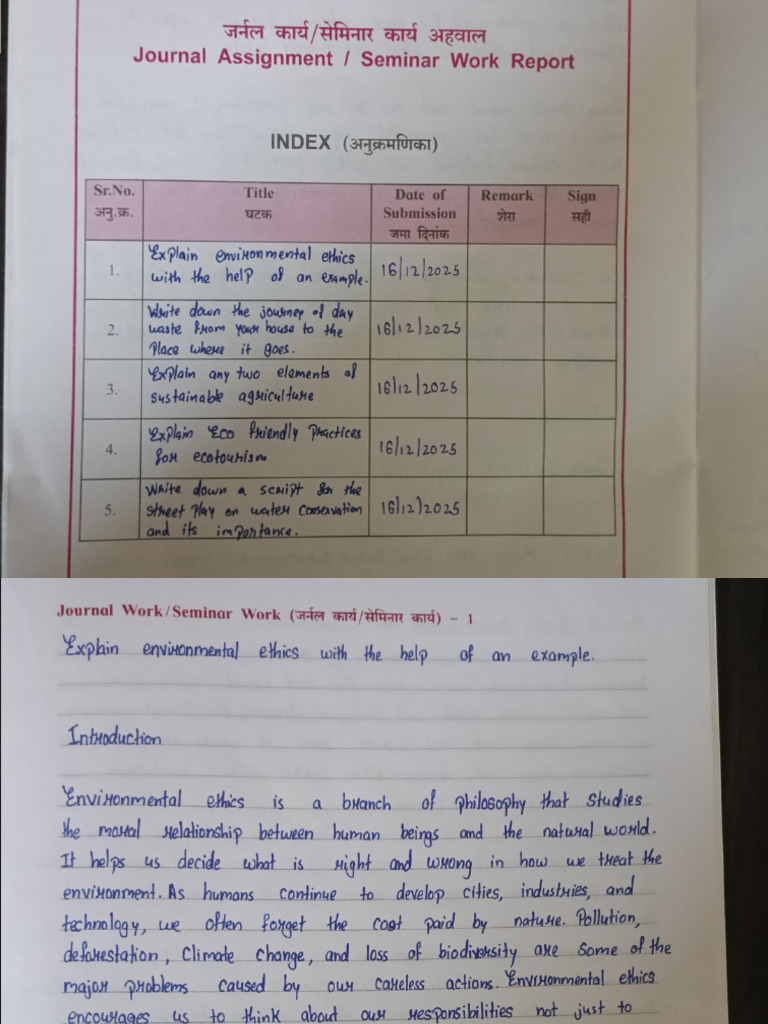 जर्नल कार्य/सेमिनार कार्य अहवाल
Journal Assignment / Seminar Work Report
INDEX (अनुक्रमणिका)
Sr.No. Title Date of Remark Sign
अनु.क्र. घटक Submission शेरा सही
जमा दिनांक
Explain environmental ethics
1. with the help of an example. 16/12/2025
Write down the journey of day
2. waste from your house to the 16/12/2025
Place where it goes.
Explain any two elements of
3. sustainable agriculture 16/12/2025
Explain Eco friendly Practices
4. for ecotourism 16/12/2025
Write down a script for the
5. street Play on water conservation 16/12/2025
and its importance.
Journal Work/Seminar Work (जर्नल कार्य/सेमिनार कार्य) - 1
Explain environmental ethics with the help of an example.
Introduction
Environmental ethics is a branch of philosophy that studies
the moral relationship between human beings and the natural world.
It helps us decide what is right and wrong in how we treat the
environment. As humans continue to develop cities, industries, and
technology, we often forget the cost paid by nature. Pollution,
deforestation, climate change, and loss of biodiversity are some of the
major problems caused by our careless actions. Environmental ethics
encourages us to think about our responsibilities not just to